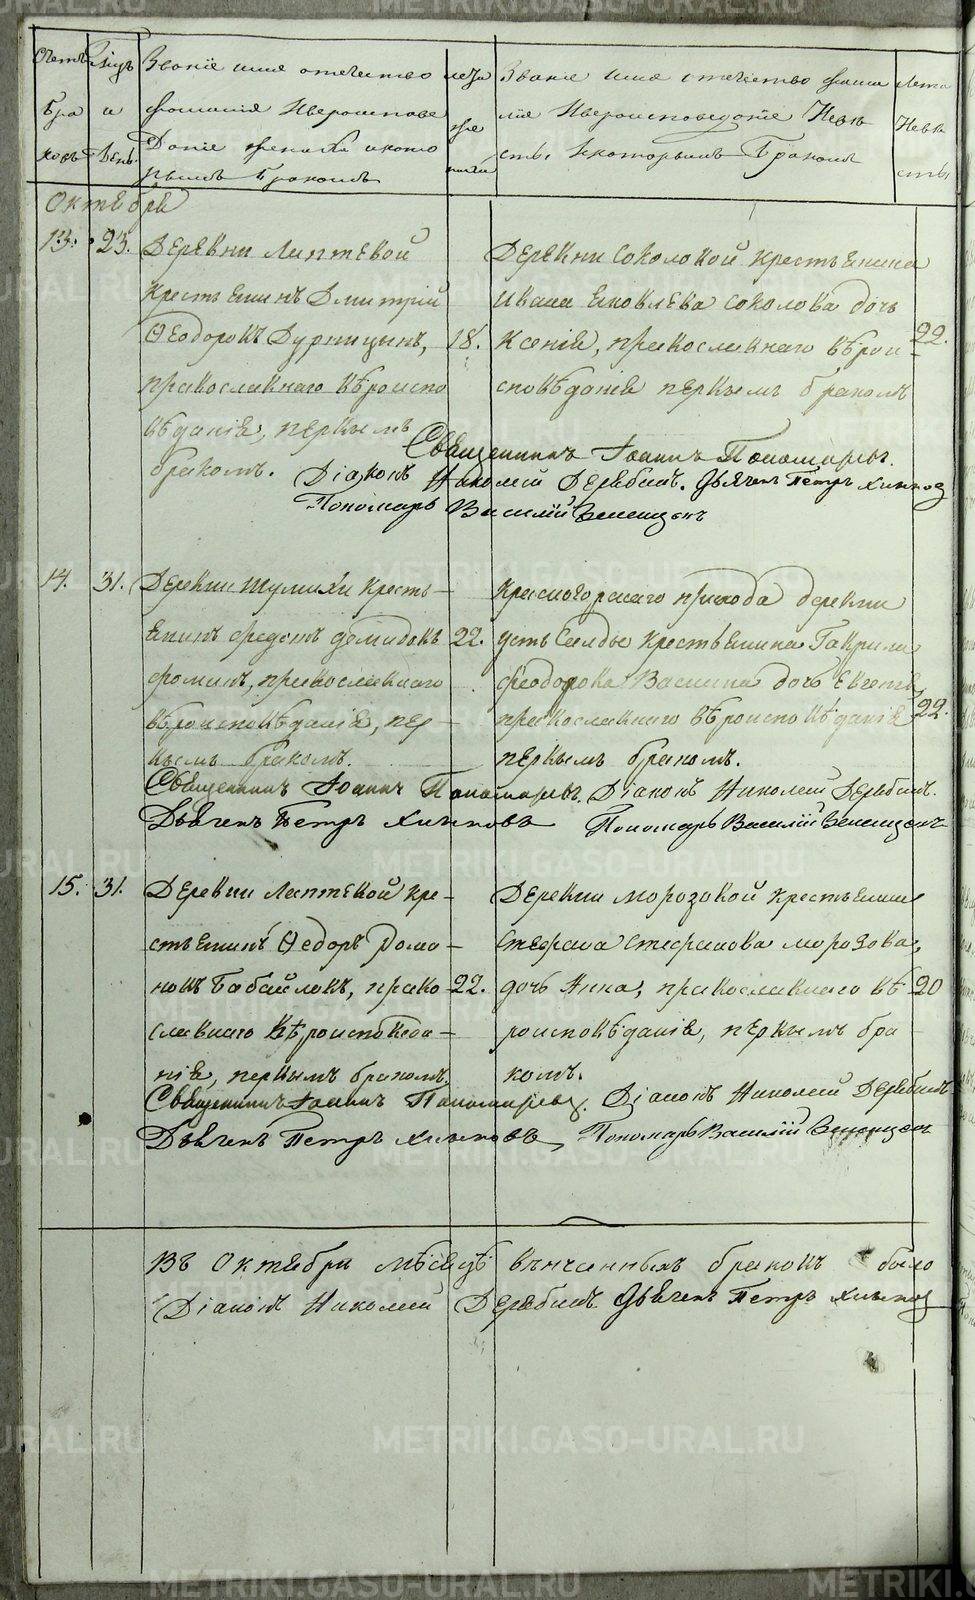 Счетъ Бра ковъ
Мѣсяцъ и День
Званіе имя отечество
фамилія Ивероисповѣ
Даніе жениха икото
рымъ Бракомъ
лета же ниха
Званіе имя отечество фами
лія Ивероисповеданіе Невѣ
сты Икоторымъ Бракомъ
Лета Невѣ сты
Октября
13. 23. Деревни Лаптевой
крестьянинъ Дмитрій
Ѳеодоровъ Дурницынъ, 18.
православнаго вѣроиспо
вѣданія, первымъ
бракомъ.
Деревни Соколовой крестьянина
Ивана Яковлева Соколова дочь
Ксенія, православнаго вѣрои 22.
сповѣданія первымъ бракомъ
Священникъ Іоаннъ Пономаревъ.
Діаконъ Николай Дерябинъ. Дьячекъ Петръ Хлынов
Пономарь Василій
14. 31. Деревни Шумихи кресть
янинъ федотъ демидовъ 22.
фоминъ, православнаго
вѣроисповѣданія, пер
вымъ бракомъ.
Красногорскаго прихода деревни
усть Салды крестьянина Гаврила
феодорова Васнина дочь Евгенія
православнаго вѣроисповѣданія 22.
первымъ бракомъ.
Священникъ Іоаннъ Пономаревъ. Діаконъ Николай Дерябинъ.
Дьячекъ Петръ Хлыновъ Пономарь Василій
15. 31. Деревни Лаптевой кре
стьянинъ Ѳедоръ Рома
новъ Бабайловъ, право 22.
славнаго вѣроисповѣда
нія, первымъ бракомъ.
Деревни морозовой крестьянина
Стефана стефанова морозова,
дочь Анна, православнаго вѣ 20
роисповѣданія, первымъ бра
комъ.
Священникъ Іоаннъ Пономаревъ. Діаконъ Николай Дерябинъ
Дьячекъ Петръ Хлыновъ, Пономарь Василій
Въ Октябрѣ мѣсяцѣ вѣнчанныхъ браковъ было
Діаконъ Николай Дерябинъ Дьячекъ Петръ Хлынов
METRIKI.GASO-URAL.RU